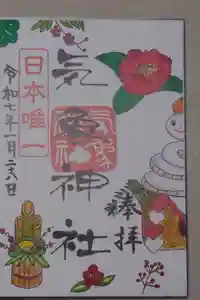 奉拝
気象神社
日本唯一
令和七年一月二十八日